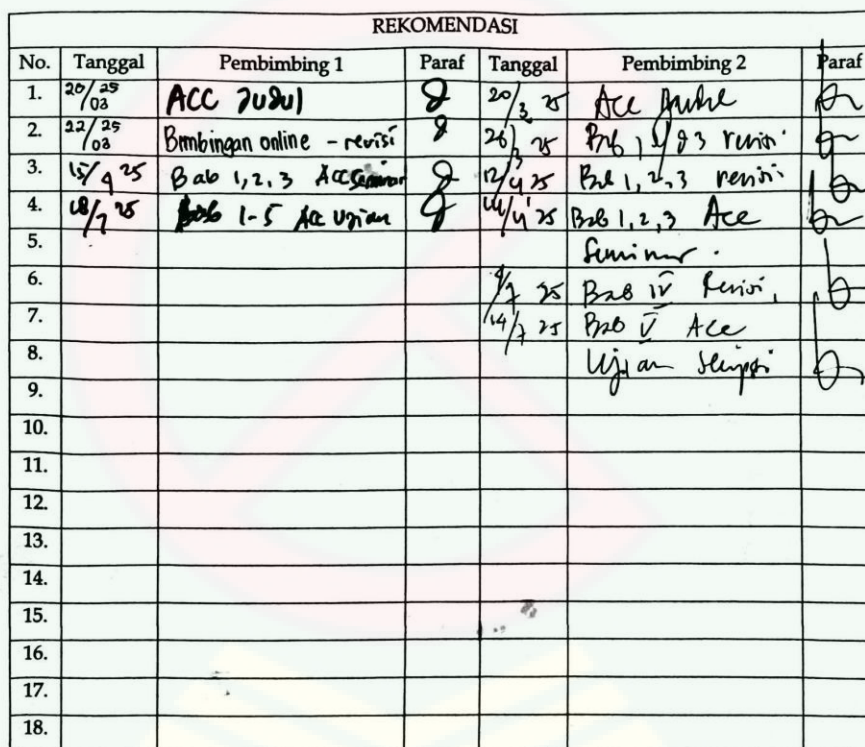 REKOMENDASI
No. Tanggal Pembimbing 1 Paraf Tanggal Pembimbing 2 Paraf
1. 20/03 25 ACC Judul 20/3 25 Acc Judul
2. 22/03 25 Bimbingan online - revisi 26/3 25 Bab 1, revisi
3. 15/4 25 Bab 1,2,3 Acc Seminar 12/4 25 Bab 1,2,3 revisi
4. 18/7 25 Bab 1-5 Acc Ujian 14/4 25 Bab 1,2,3 Acc
5. Seminar.
6. /7 25 Bab IV Revisi,
7. 14/7 25 Bab V Acc
8. Ujian Skripsi
9.
10.
11.
12.
13.
14.
15.
16.
17.
18.